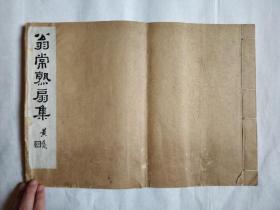 翁常熟扇集